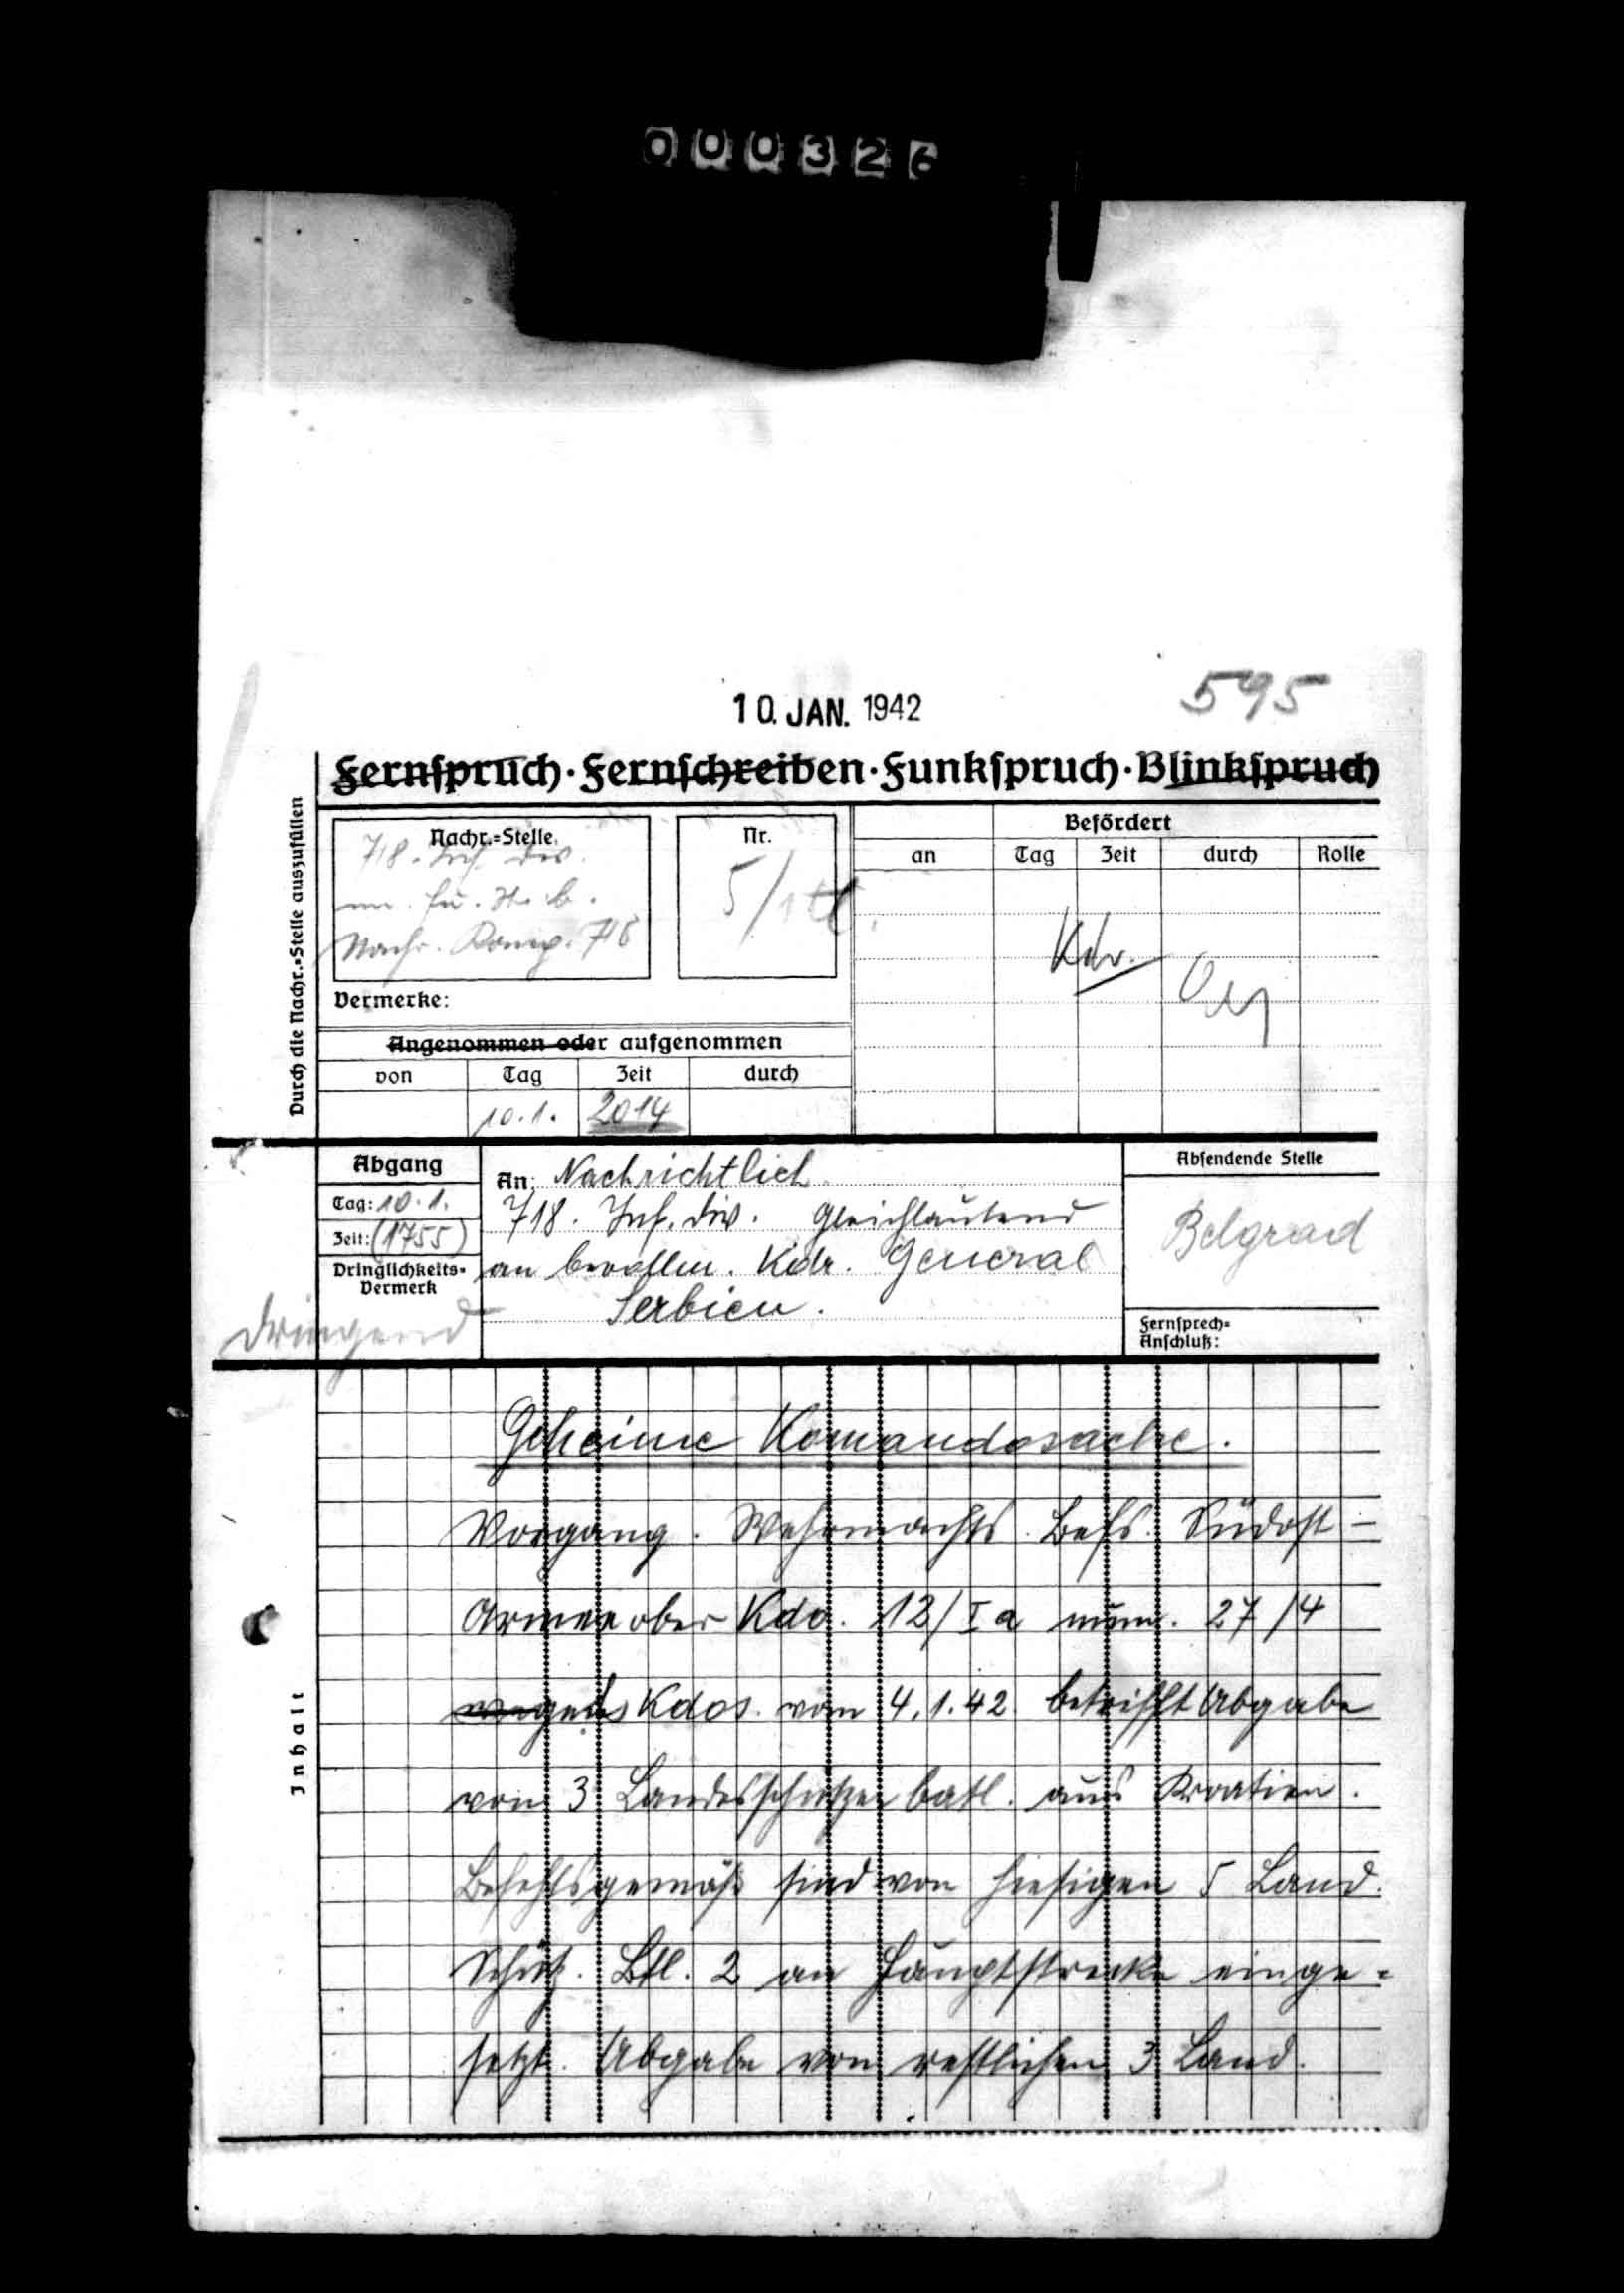 000326
10. JAN. 1942
595
Fernspruch · Fernschreiben · Funkspruch · Blinkspruch
Durch die Nachr.=Stelle auszufüllen
Nachr.=Stelle
718. Inf. Div.
Nachr. Komp. 718
Nr.
5/
Befördert
an Tag Zeit durch Rolle
Kdr.
Vermerke:
Angenommen oder aufgenommen
von Tag Zeit durch
10.1. 2014
Abgang
Tag: 10.1.
Zeit: (1755)
Dringlichkeits=
Vermerk
Dringend
An: Nachrichtlich
718. Inf. Div. gleichlautend
an bevollm. Kdr. General
Serbien.
Absendende Stelle
Belgrad
Fernsprech=
Anschluß:
Inhalt
Geheime Komandosache.
Vorgang. Wehrmachts. Befs. Südost –
Armeeober Kdo. 12/Ia num. 27/4
Kdos. vom 4.1.42 betrifft Abgabe
von 3 Landesschützen batl. aus Kroatien.
Befehlsgemäß sind von hiesigen 5 Land.
Schütz. Btl. 2 an Hauptstrecke einge=
setzt. Abgabe von restlichen 3 Land.